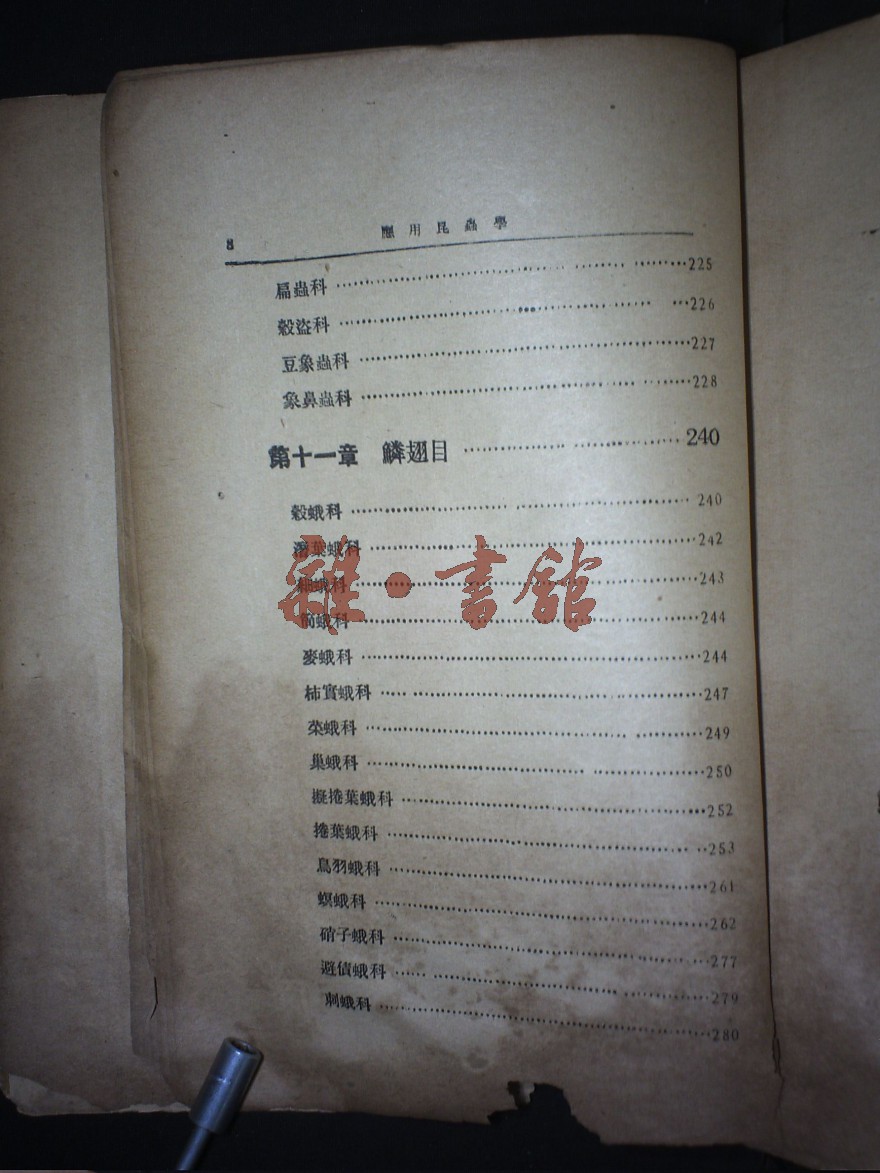 8 應用昆蟲學
扁蟲科 225
穀盜科 226
豆象蟲科 227
象鼻蟲科 228
第十一章 鱗翅目 240
穀蛾科 240
潛葉蛾科 242
細蛾科 243
蛾科 244
麥蛾科 244
柿實蛾科 247
菜蛾科 249
巢蛾科 250
擬捲葉蛾科 252
捲葉蛾科 253
鳥羽蛾科 261
螟蛾科 262
硝子蛾科 277
避債蛾科 279
刺蛾科 280
雜·書館